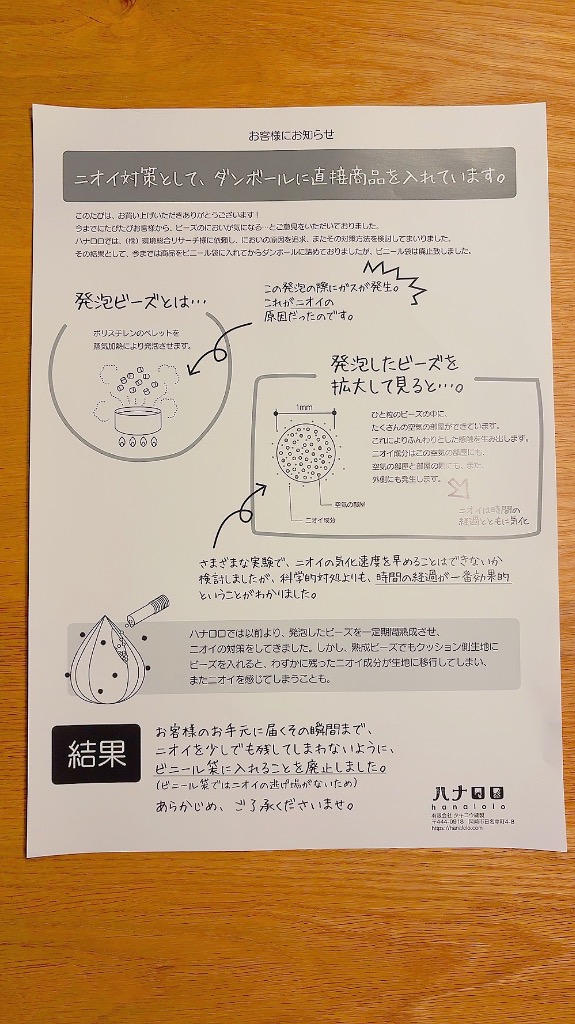 お客様にお知らせ
ニオイ対策として、ダンボールに直接商品を入れています。
このたびは、お買い上げいただきありがとうございます！
今までにたびたびお客様から、ビーズのにおいが気になる…とご意見をいただいておりました。
ハナロロでは、(株)環境総合リサーチ様に依頼し、においの原因を追求、またその対策方法を検討してまいりました。
その結果として、今までは商品をビニール袋に入れてからダンボールに詰めておりましたが、ビニール袋は廃止致しました。
発泡ビーズとは…
ポリスチレンのペレットを
蒸気加熱により発泡させます。
この発泡の際にガスが発生。
これがニオイの
原因だったのです。
発泡したビーズを
拡大して見ると…。
1mm
空気の部屋
ニオイ成分
ひと粒のビーズの中に、
たくさんの空気の部屋ができています。
これによりふんわりとした感触を生み出します。
ニオイ成分はこの空気の部屋にも、
空気の部屋と部屋の間にも、また、
外側にも発生します。
ニオイは時間の
経過とともに気化
さまざまな実験で、ニオイの気化速度を早めることはできないか
検討しましたが、科学的対処よりも、時間の経過が一番効果的
ということがわかりました。
ハナロロでは以前より、発泡したビーズを一定期間熟成させ、
ニオイの対策をしてきました。しかし、熟成ビーズでもクッション側生地に
ビーズを入れると、わずかに残ったニオイ成分が生地に移行してしまい、
またニオイを感じてしまうことも。
結果
お客様のお手元に届くその瞬間まで、
ニオイを少しでも残してしまわないように、
ビニール袋に入れることを廃止しました。
(ビニール袋ではニオイの逃げ場がないため)
あらかじめ、ご了承くださいませ。
ハナロロ
hanalolo
有限会社 タナコウ縫製
〒444-0918 岡崎市日名本町4-8
https://hanalolo.com